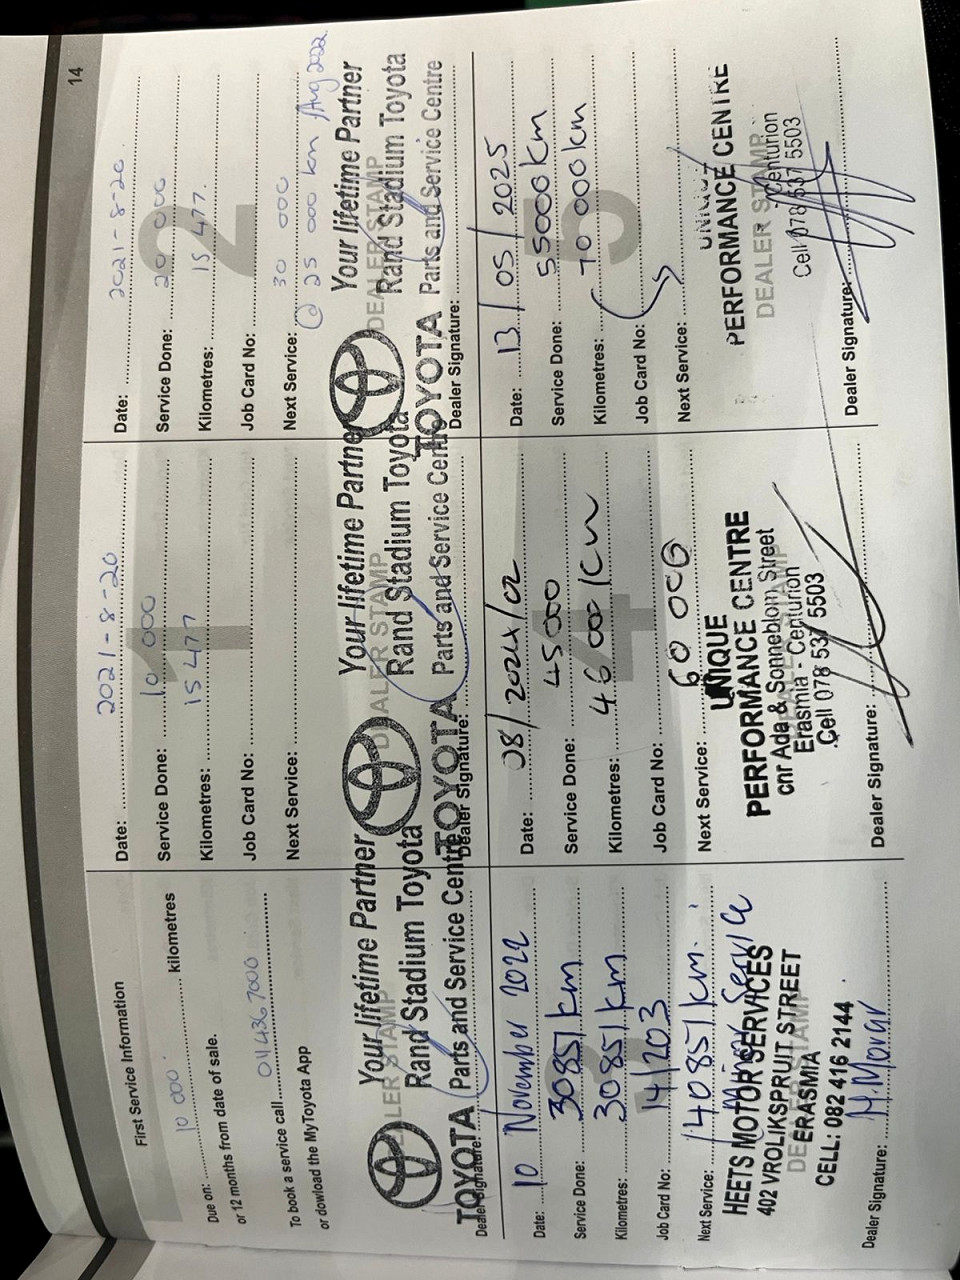 14
First Service Information
Due on: 10 000 kilometres
or 12 months from date of sale.
To book a service call 011 436 7000
or dowload the MyToyota App
DEALER STAMP
Your lifetime Partner
Rand Stadium Toyota
TOYOTA Parts and Service Centre
Dealer Signature:
1
Date: 2021-8-20
Service Done: 10 000
Kilometres: 15 477
Job Card No:
Next Service:
DEALER STAMP
Your lifetime Partner
Rand Stadium Toyota
TOYOTA Parts and Service Centre
Dealer Signature:
2
Date: 2021-8-20.
Service Done: 20 000
Kilometres: 15 477.
Job Card No:
Next Service: 30 000
@ 25 000 km Aug 2022
DEALER STAMP
Your lifetime Partner
Rand Stadium Toyota
TOYOTA Parts and Service Centre
Dealer Signature:
Date: 10 November 2022
Service Done: 30851 km
Kilometres: 30851 km
Job Card No: 14203
Next Service: 40851 km.
Service
HEETS MOTOR SERVICES
402 VROLIKSPRUIT STREET
DEALER STAMP
ERASMIA
CELL: 082 416 2144
Dealer Signature: H. Morar
4
Date: 08/2024/02
Service Done: 45000
Kilometres: 46 000 km
Job Card No:
Next Service: 60 000
UNIQUE
PERFORMANCE CENTRE
cnr Ada & Sonneblom Street
DEALER STAMP
Erasmia - Centurion
Cell 078 537 5503
Dealer Signature:
5
Date: 13/05/2025
Service Done: 55000 km
Kilometres: 70 000 km
Job Card No:
Next Service:
UNIQUE
PERFORMANCE CENTRE
DEALER STAMP
Centurion
Cell 078 537 5503
Dealer Signature: